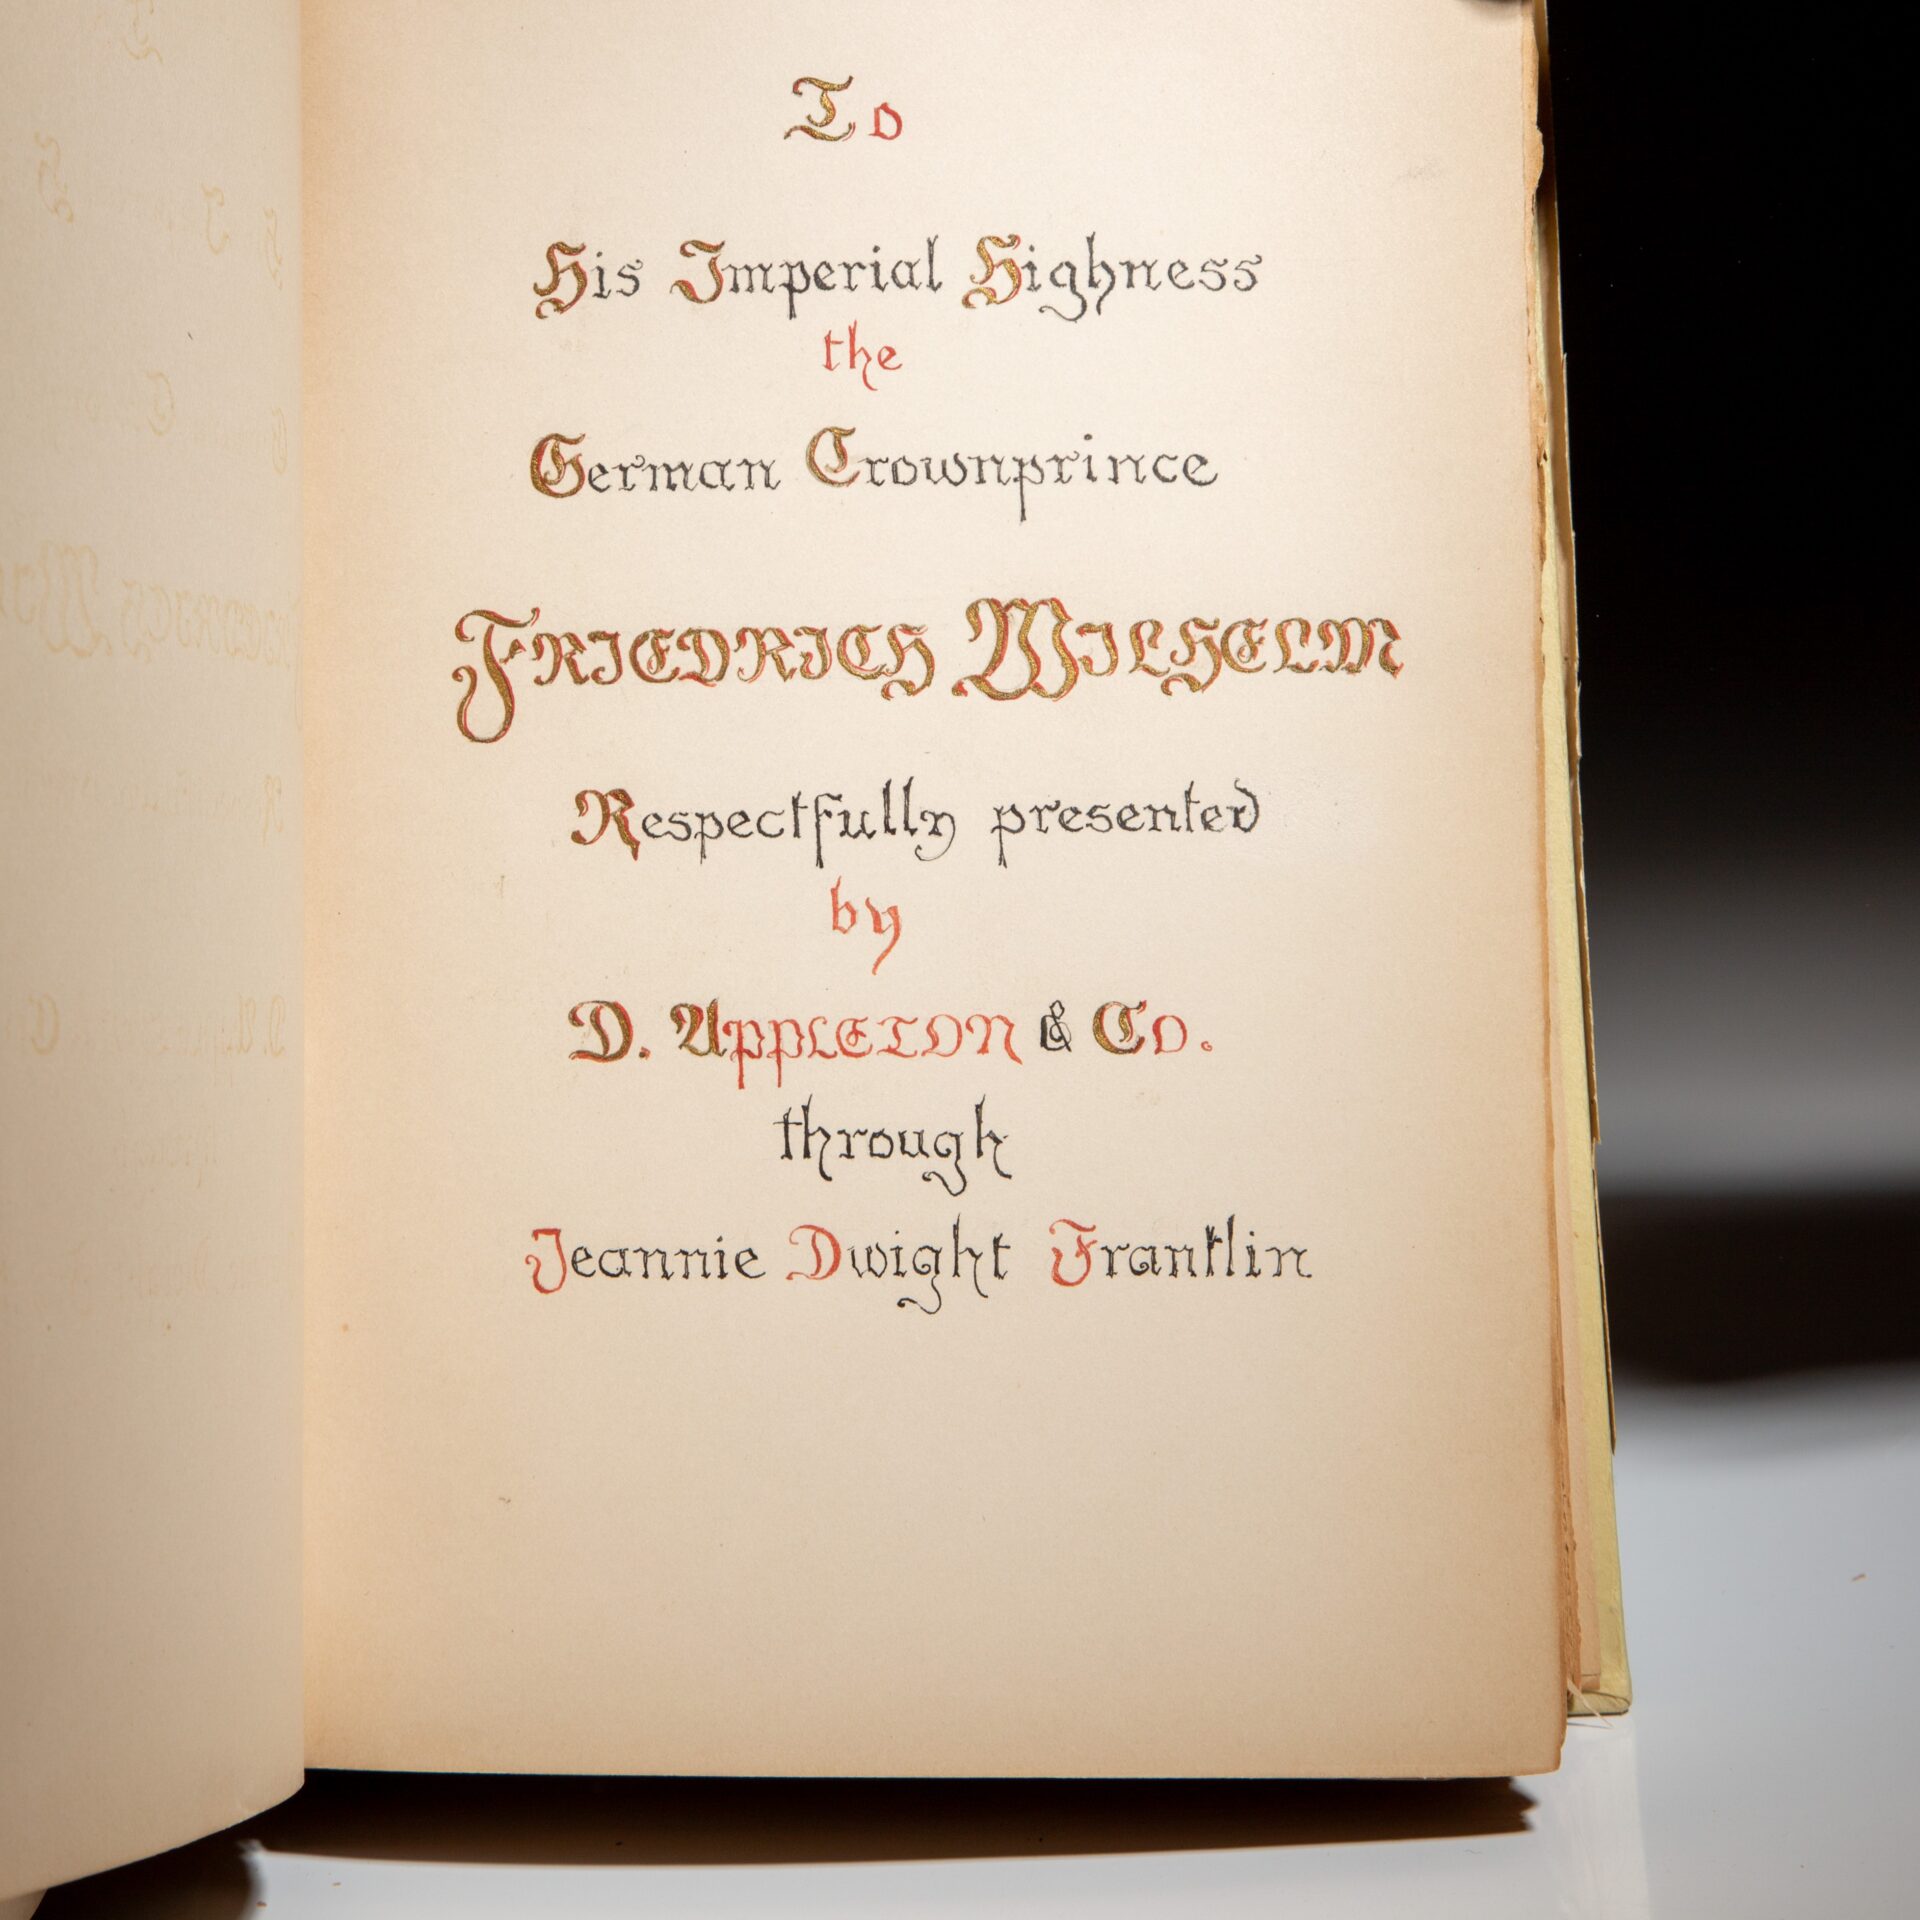 To
His Imperial Highness
the
German Crownprince
FRIEDRICH WILHELM
Respectfully presented
by
D. APPLETON & Co.
through
Jeannie Dwight Franklin